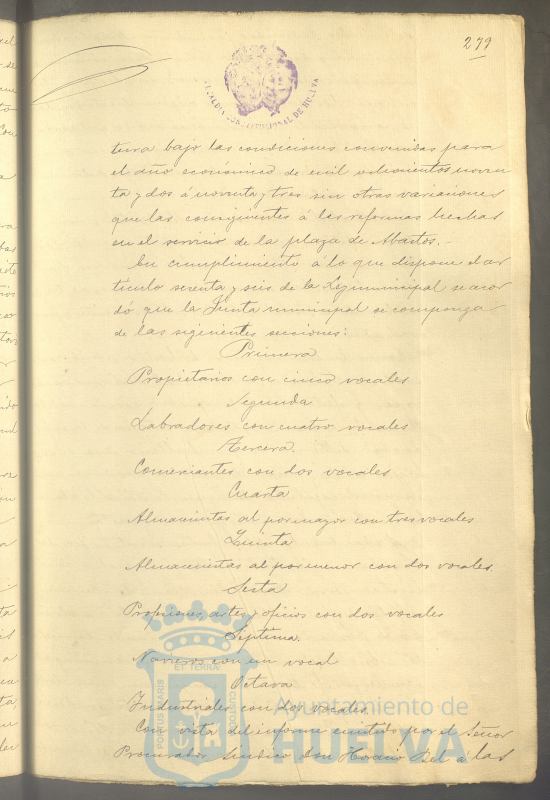 279
ALCALDIA CONSTITUCIONAL DE HUELVA
tura bajo las condiciones convenidas para
el año económico de mil ochocientos noven
ta y dos á noventa y tres sin otras variaciones
que las consiguientes á las reformas hechas
en el servicio de la plaza de Abastos.
En cumplimiento á lo que dispone el ar
tículo sesenta y seis de la Ley municipal se acor
dó que la Junta municipal se componga
de las siguientes secciones:
Primera
Propietarios con cinco vocales
Segunda
Labradores con cuatro vocales
Tercera.
Comerciantes con dos vocales
Cuarta
Almacenistas al por mayor con tres vocales
Quinta
Almacenistas al por menor con dos vocales.
Sesta
Profesiones, artes y oficios con dos vocales
Septima.
Navieros con un vocal
Octava
Industriales con dos vocales.
Con vista del informe emitido por el Señor
Procurador Síndico Don Horacio Bel á las
PORTUS MARIS ET TERRAE CUSTODIA
Ayuntamiento de
HUELVA